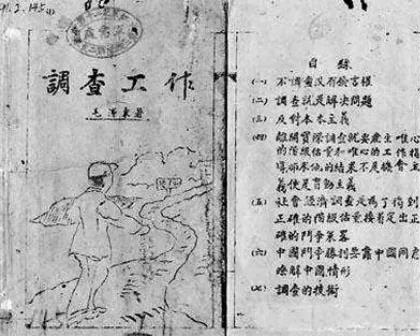 調查工作
毛澤東著
目錄
(一) 不調查没有發言權
(二) 調查就是解决問題
(三) 反對本本主義
(四) 離開實際調查就要產生唯心
的階級估量和唯心的工作指
導那末他的結果不是機會主
義便是盲動主義
(五) 社會經濟調查是為了得到
正確的階級估量接着定出正
確的鬥爭策畧
(六) 中國鬥爭勝利要靠中國同志
瞭解中國情形
(七) 調查的技術